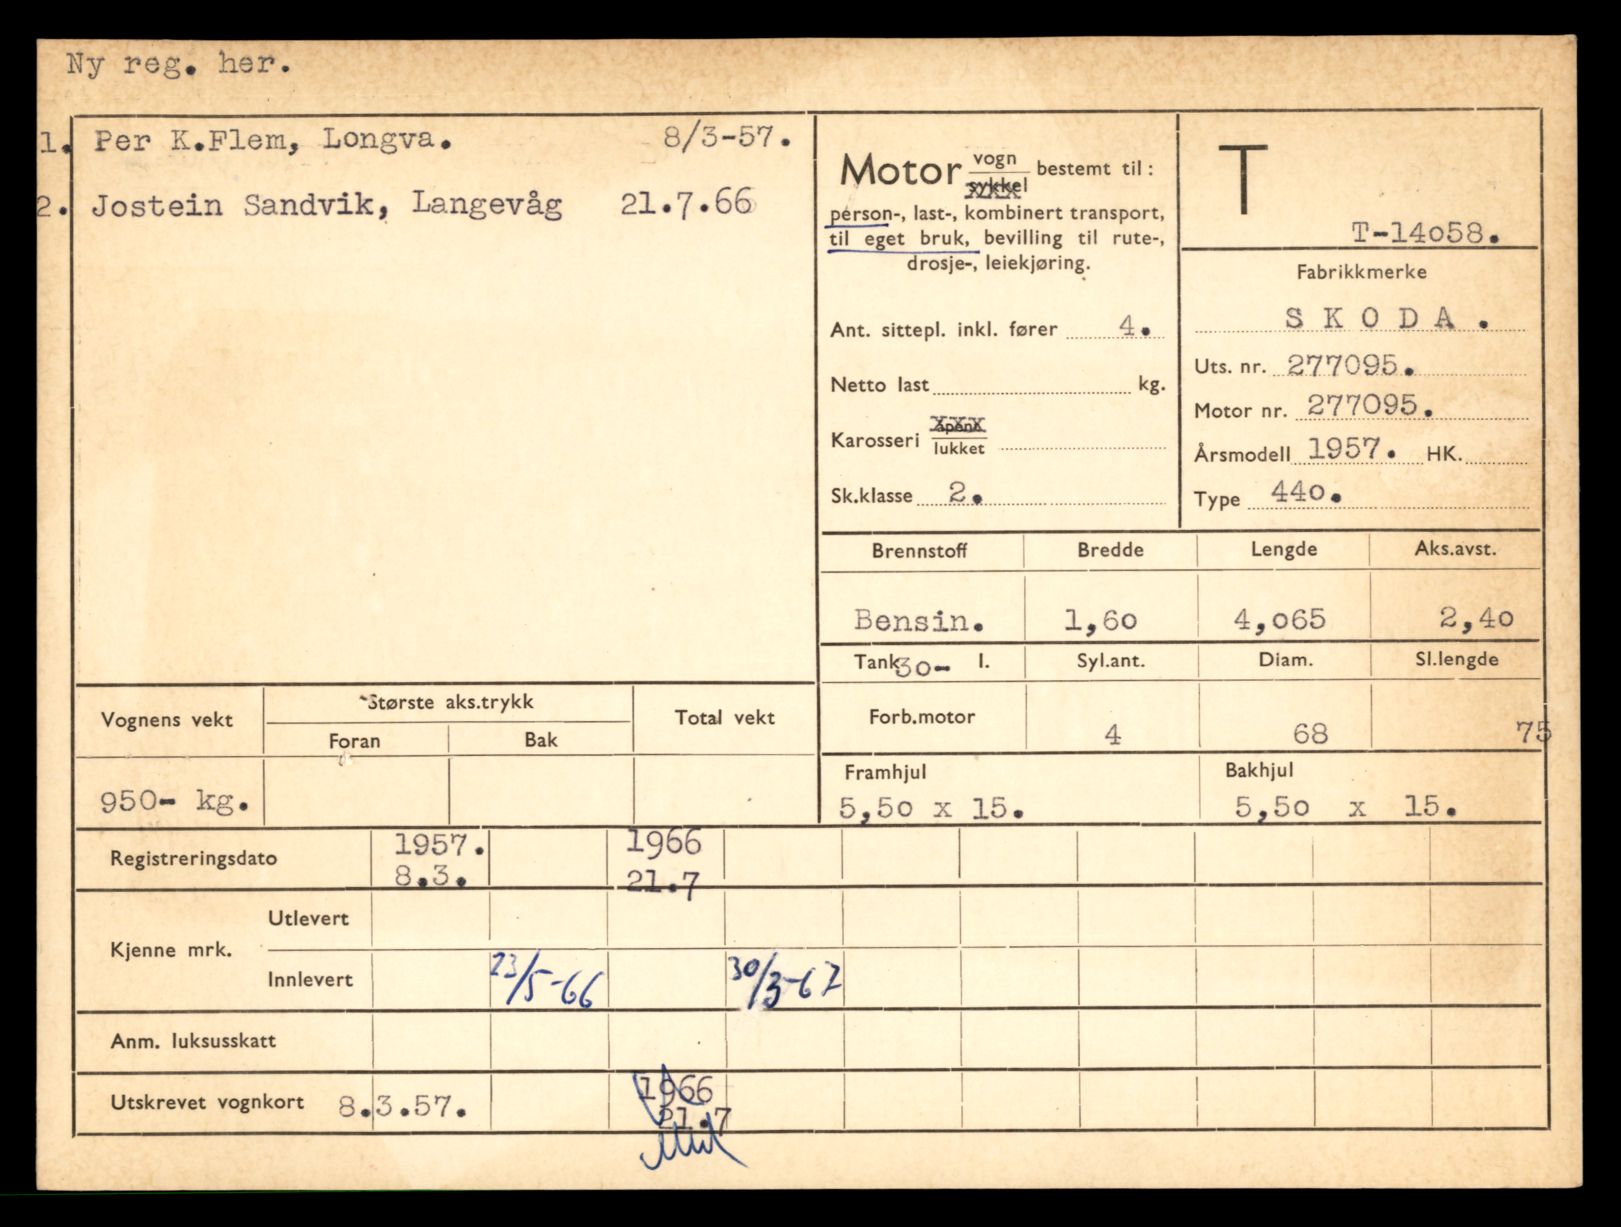 Ny reg. her.
1. Per K.Flem, Longva. 8/3-57.
2. Jostein Sandvik, Langevåg 21.7.66
Motor vogn
sykkel bestemt til:
person-, last-, kombinert transport,
til eget bruk, bevilling til rute-,
drosje-, leiekjøring.
Ant. sittepl. inkl. fører 4.
Netto last kg.
Karosseri åpent
lukket
Sk.klasse 2.
T
T-14058.
Fabrikkmerke
SKODA.
Uts. nr. 277095.
Motor nr. 277095.
Årsmodell 1957. HK.
Type 440.
Brennstoff Bredde Lengde Aks.avst.
Bensin. 1,60 4,065 2,40
Tank 30- l. Syl.ant. Diam. Sl.lengde
Forb.motor 4 68 75
Framhjul Bakhjul
5,50 x 15. 5,50 x 15.
Vognens vekt Største aks.trykk Total vekt
Foran Bak
950- kg.
Registreringsdato 1957. 1966
8.3. 21.7
Kjenne mrk. Utlevert
Innlevert 23/5-66 30/3-67
Anm. luksusskatt
Utskrevet vognkort 8.3.57. 1966
21.7